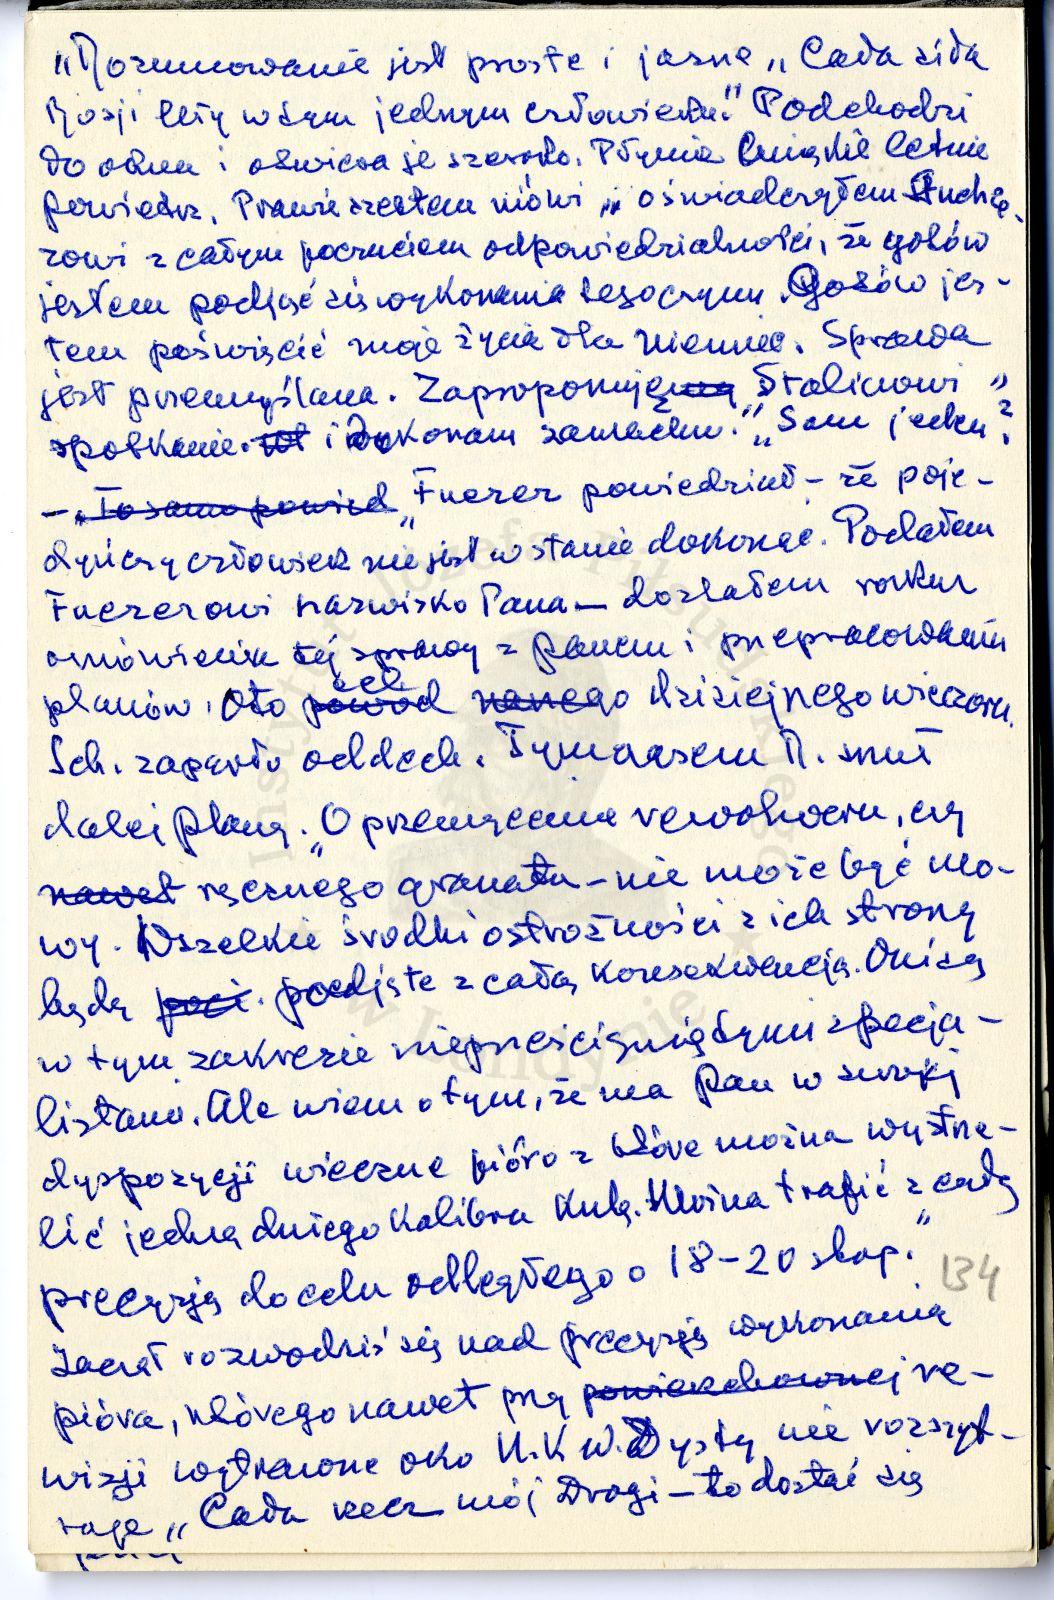 „Rozumowanie jest proste i jasne „Cała siła
Rosji leży w tym jednym człowieku." Podchodzi
do okna i otwiera je szeroko. Płynie letnie
powietrze. Prawie szeptem mówi „oświadczyłem Fueh
rowi z całym poczuciem odpowiedzialności, że gotów
jestem podjąć się wykonania tego czynu. Gotów jes-
tem poświęcić moje życie dla Niemiec. Sprawa
jest przemyślana. Zaproponuję Stalinowi
spotkanie i dokonam zamachu." „Sam jeden?"
– „To samo powied „Fuerer powiedział – że poje-
dyńczy człowiek nie jest w stanie dokonać. Podałem
Fuererowi nazwisko Pana – dostałem rozkaz
omówienia tej sprawy z panem i przepracowania
planów. Oto powód cel nanego dzisiejszego wieczoru.
Sch. zaparło oddech. Tymczasem R. snuł
dalej plany. „O przemycenie rewolweru, czy
nawet ręcznego granatu – nie może być mo-
wy. Wszelkie środki ostrożności z ich strony
będą poci. podjęte z całą konsekwencją. Oni są
w tym zakresie nieprześcignionymi specja-
listami. Ale wiem o tym, że ma Pan w swojej
dyspozycji wieczne pióro z którego można wystrze-
lić jedną dużego kalibru kulą. Można trafić z całą
precyzją do celu odległego o 18–20 stop."
Zaczął rozwodzić się nad precyzją wykonania
pióra, którego nawet przy powierzchownej re-
wizji wytrawne oko N.K.W.Dysty nie rozszyf-
ruje „Cała rzecz mój Drogi – to dostać się
134
Instytut Józefa Piłsudskiego
w Londynie